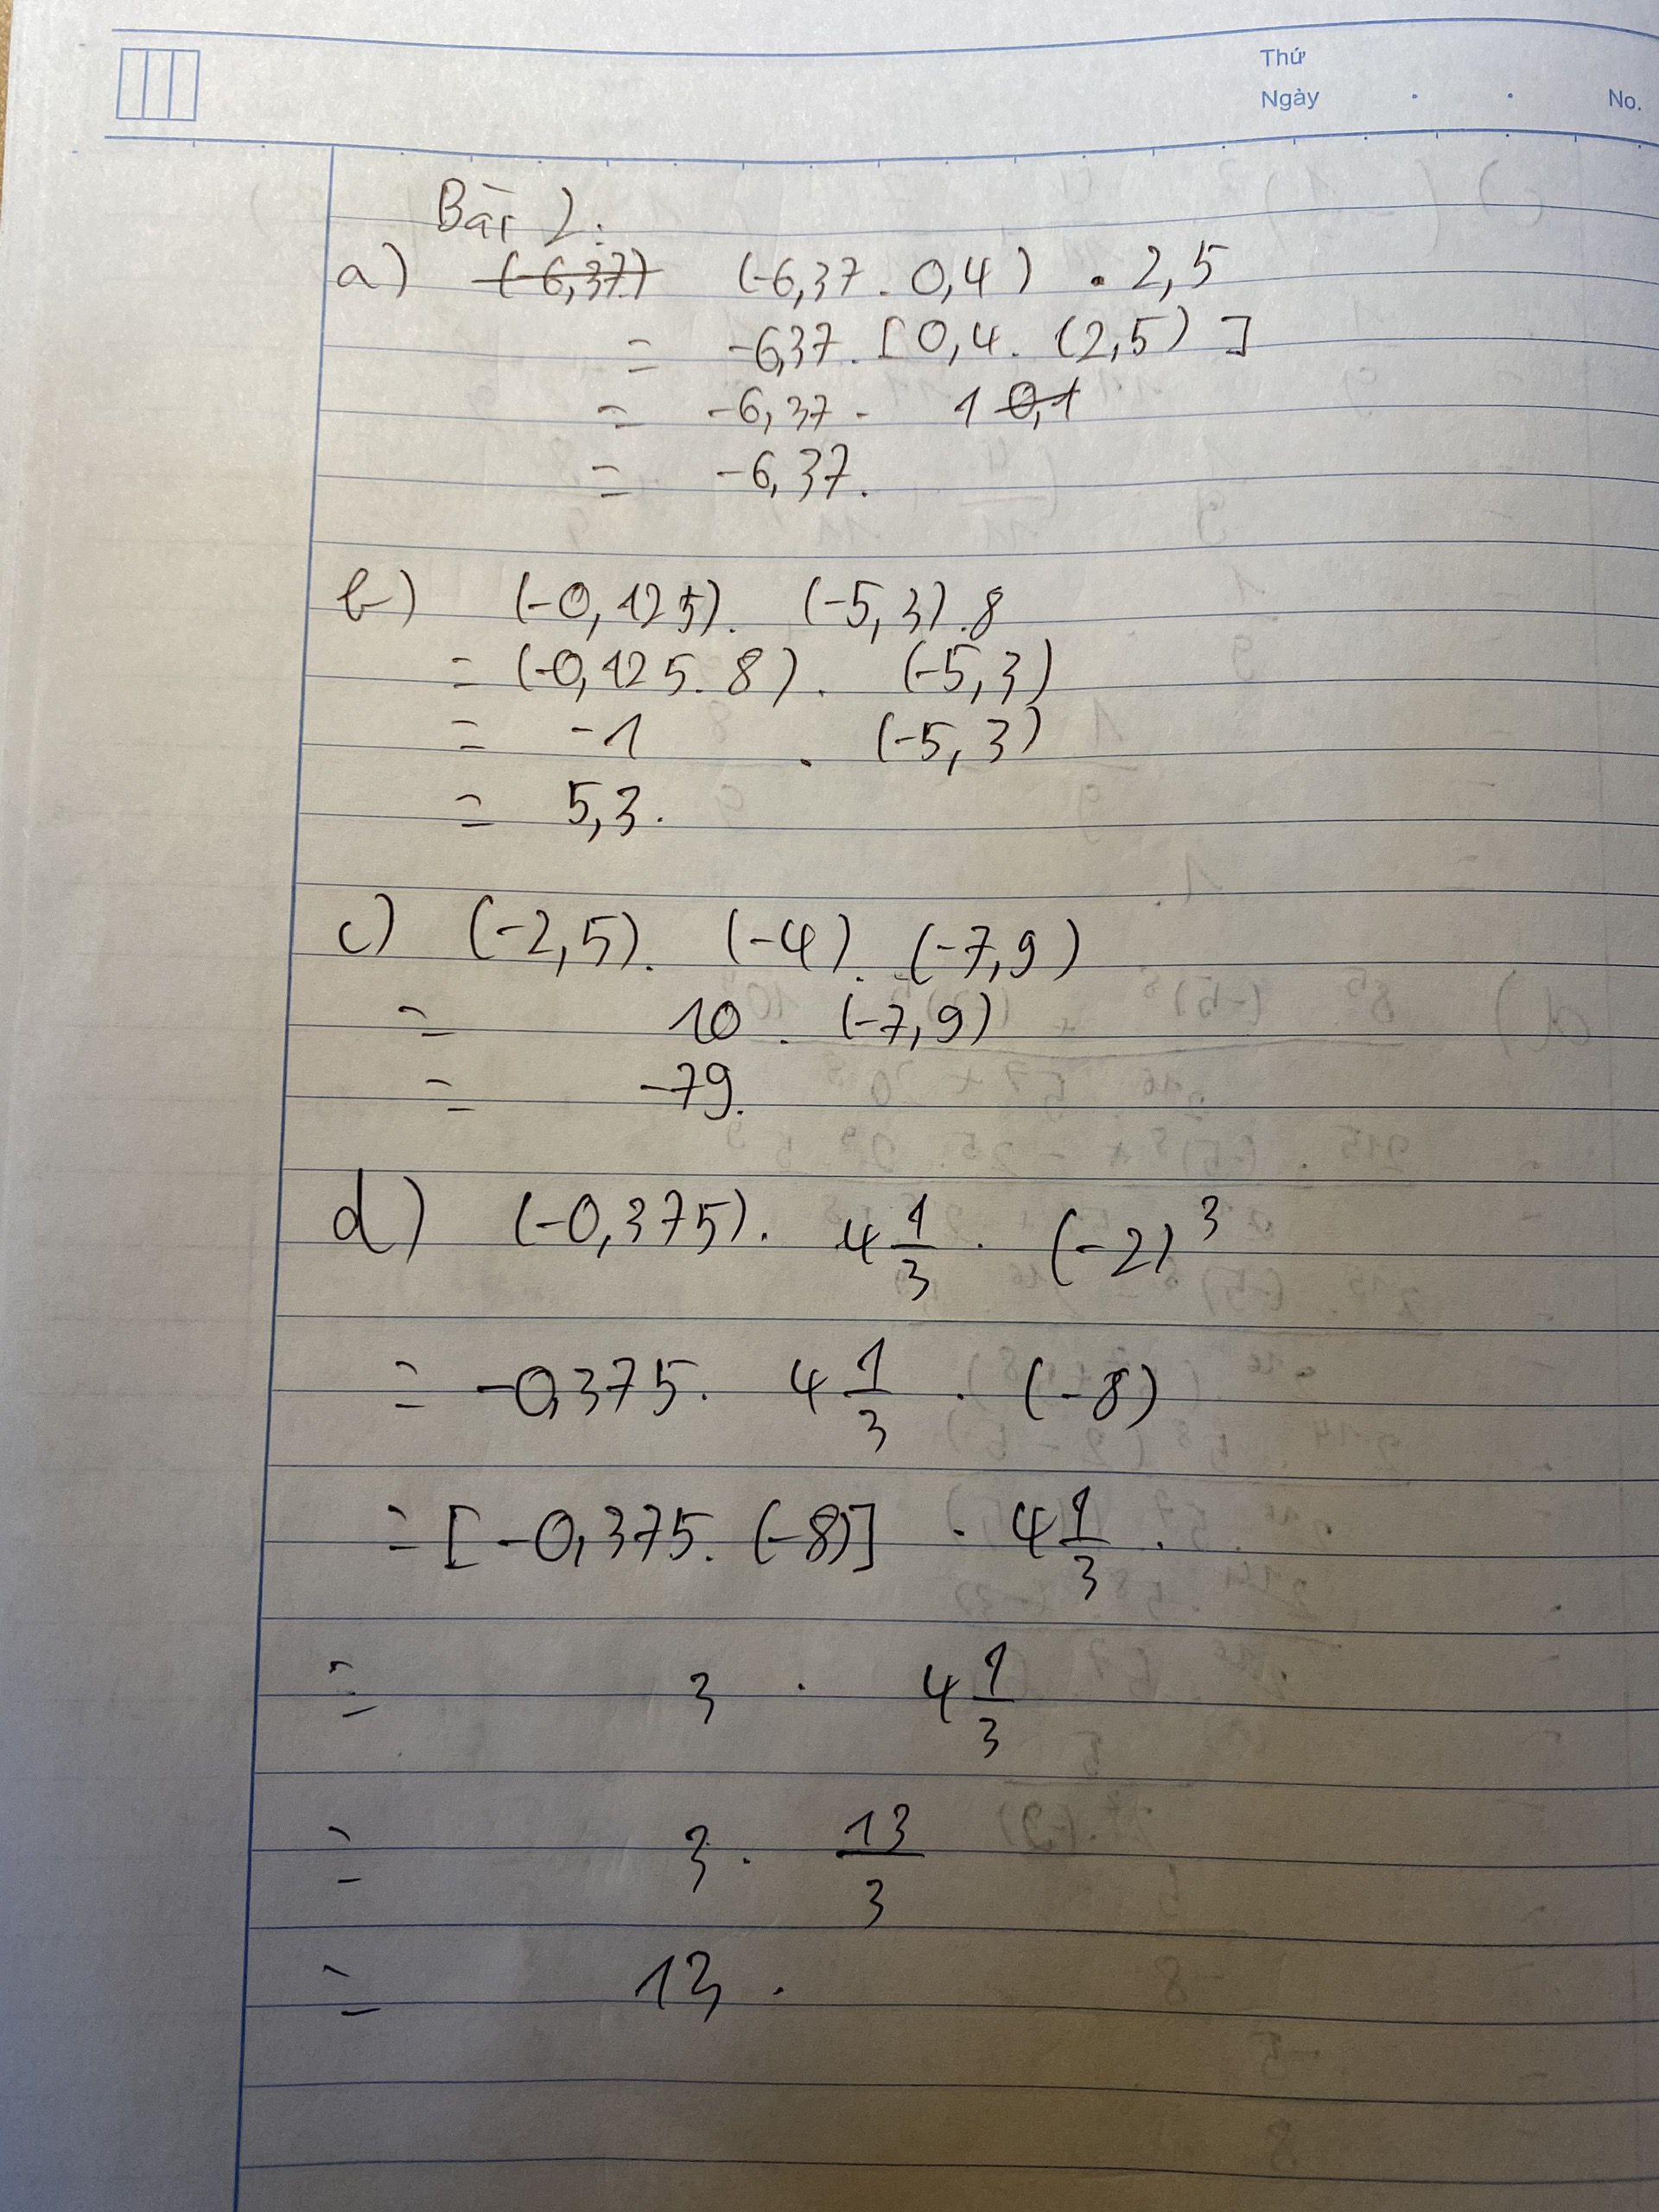 Thứ
Ngày . . No.
Bài 2:
a) (-6,37) (-6,37 . 0,4) . 2,5
= -6,37 . [0,4 . (2,5)]
= -6,37 . 1 0,1
= -6,37.
b) (-0,125). (-5,3).8
= (-0,125.8). (-5,3)
= -1 . (-5,3)
= 5,3.
c) (-2,5). (-4). (-7,9)
= 10 . (-7,9)
= -79.
d) (-0,375). 4 1/3 . (-2)³
= -0,375. 4 1/3 . (-8)
= [-0,375. (-8)] . 4 1/3 .
= 3 . 4 1/3
= 3 . 13/3
= 13 .